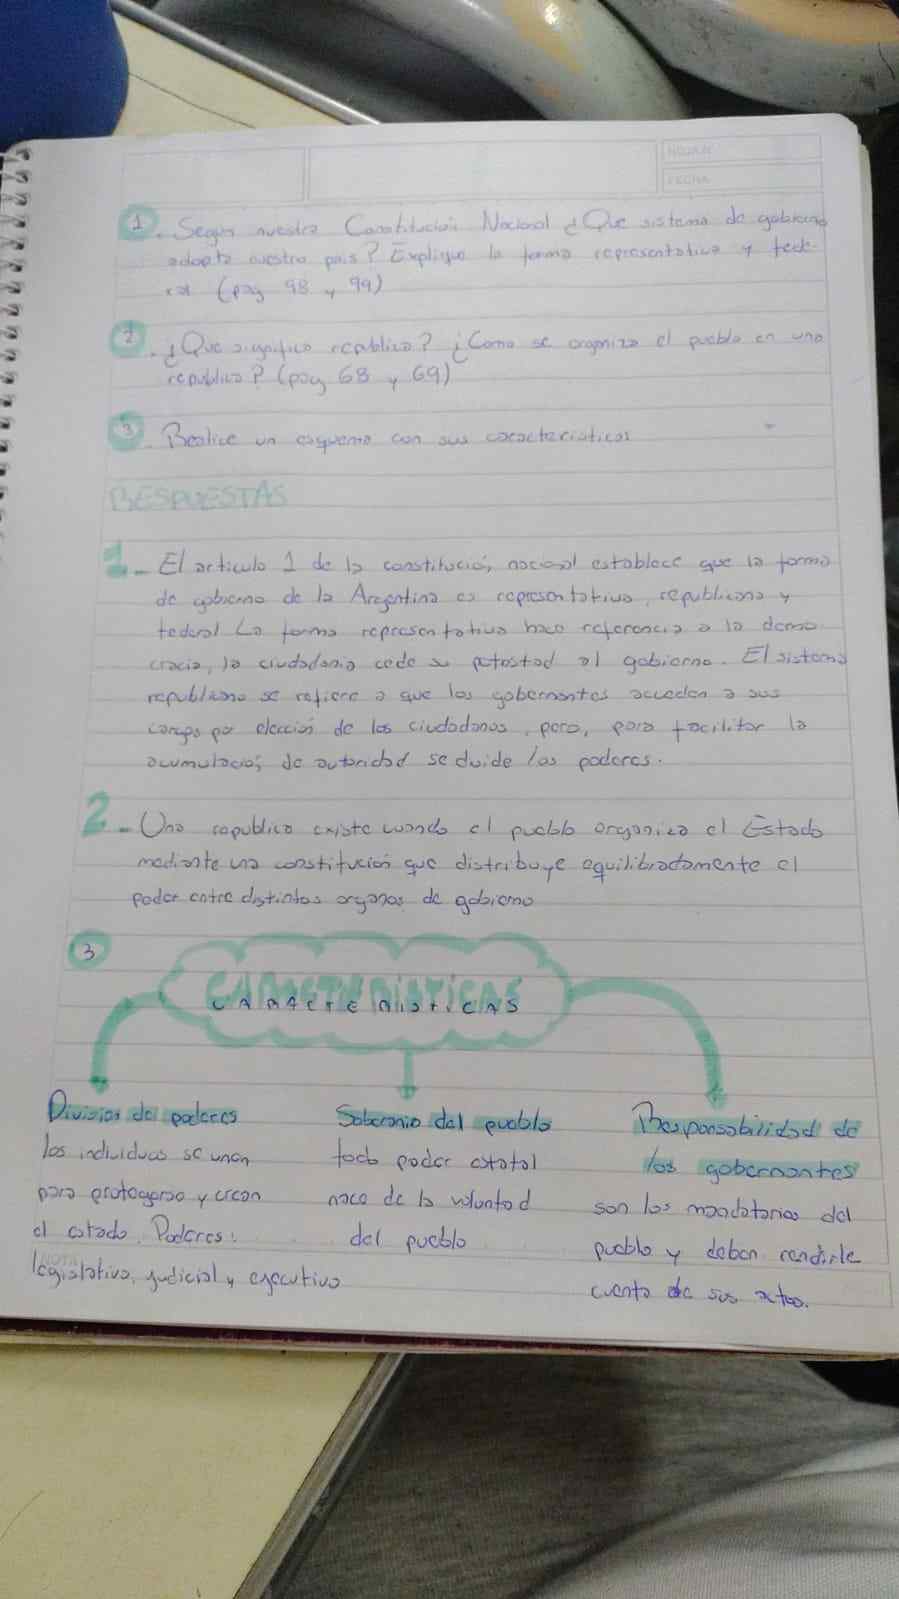 HOJA Nº
FECHA
1. Según nuestra Constitución Nacional ¿Que sistema de gobierno
adopta nuestro pais? Explique la forma representativa y fede-
ral (pag 98 y 99)
2. ¿Que significa republica? ¿Como se organiza el pueblo en una
republica? (pag 68 y 69)
3. Realice un esquema con sus caracteristicas
RESPUESTAS
1- El articulo 1 de la constitución nacional establece que la forma
de gobierno de la Argentina es representativa, republicana y
federal La forma representativa hace referencia a la demo-
cracia, la ciudadania cede su potestad al gobierno. El sistema
republicano se refiere a que los gobernantes acceden a sus
cargos por elección de los ciudadanos, pero, para facilitar la
acumulación de autoridad se divide los poderes.
2- Una republica existe cuando el pueblo organiza el Estado
mediante una constitución que distribuye equilibradamente el
poder entre distintos organos de gobierno
3
CARACTERISTICAS
Division de poderes
los individuos se unen
para protegerse y crean
el estado. Poderes:
legislativo, judicial y ejecutivo
Soberania del pueblo
todo poder estatal
nace de la voluntad
del pueblo
Responsabilidad de
los gobernantes
son los mandatarios del
pueblo y deben rendirle
cuenta de sus actos.
NOTA